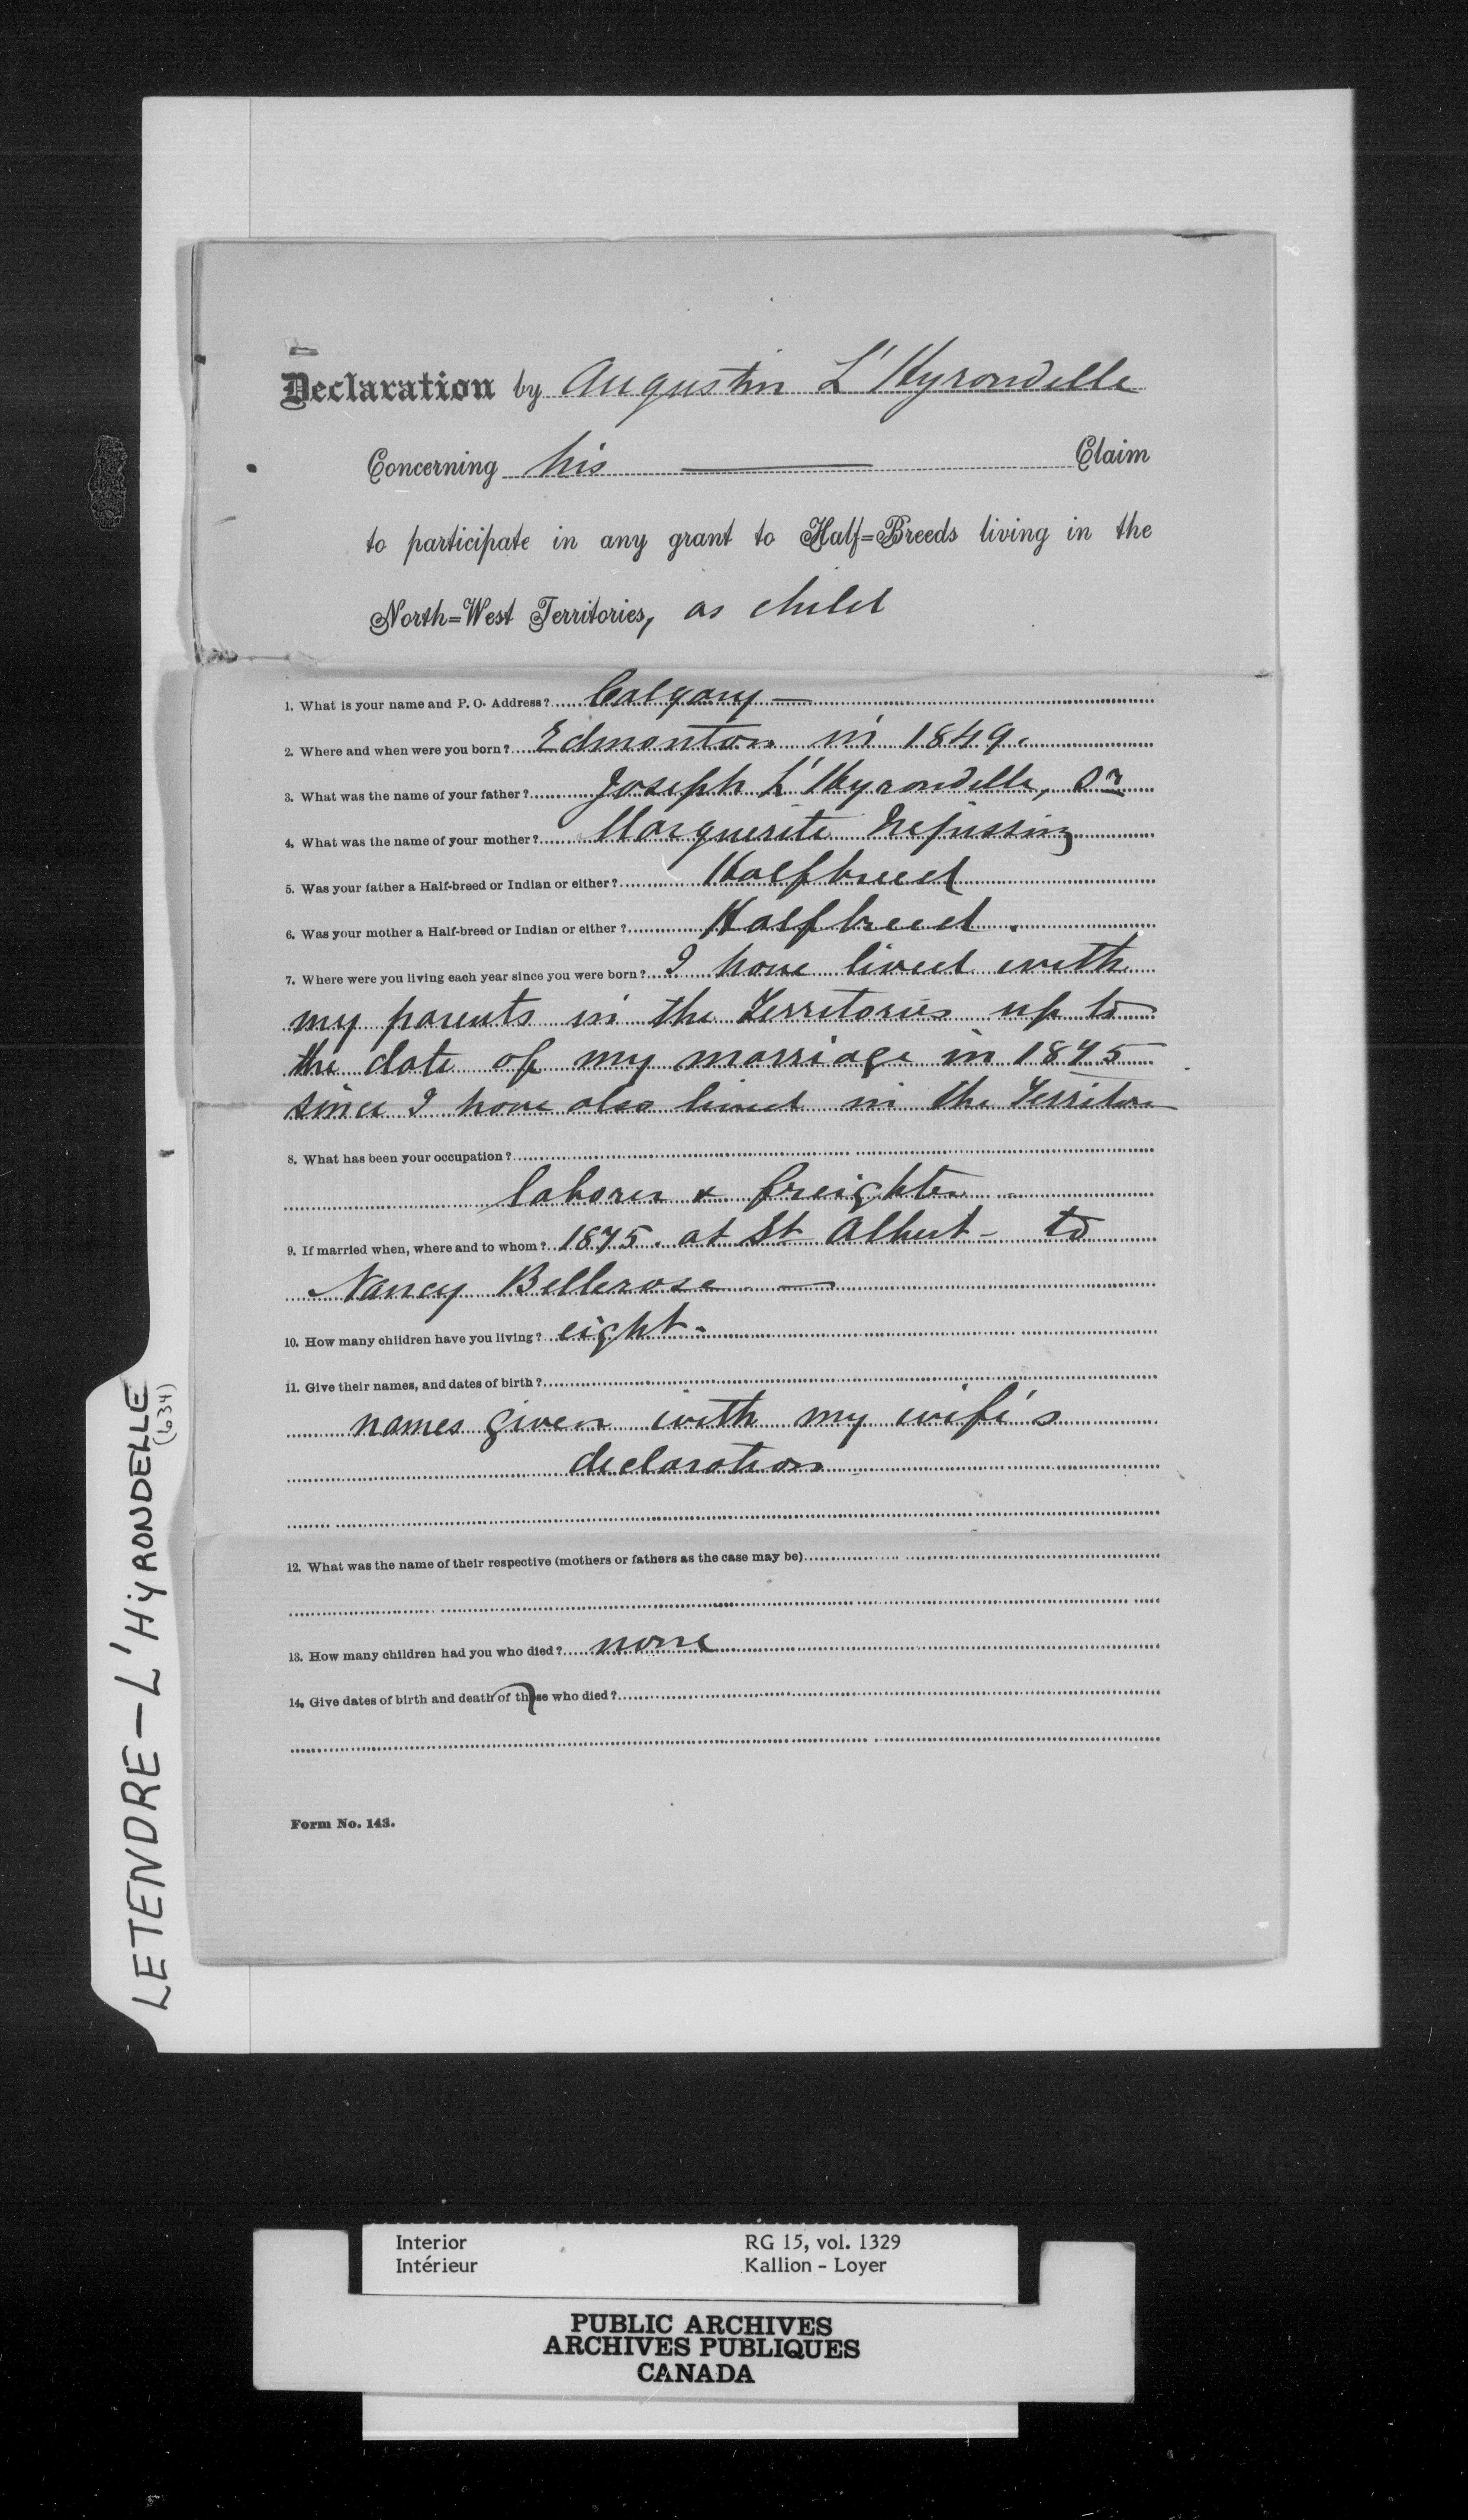 Declaration by Augustin L'Hyrondelle
Concerning his Claim
to participate in any grant to Half=Breeds living in the
North=West Territories, as child
1. What is your name and P. O. Address? Calgary —
2. Where and when were you born? Edmonton in 1849.
3. What was the name of your father? Joseph L'Hyrondelle, Sr
4. What was the name of your mother? Marguerite Nepissing
5. Was your father a Half-breed or Indian or either? Halfbreed
6. Was your mother a Half-breed or Indian or either? Halfbreed.
7. Where were you living each year since you were born? I have lived with
my parents in the Territories up to
the date of my marriage in 1875
since I have also lived in the
8. What has been your occupation?
laborer & freighter
9. If married when, where and to whom? 1875. at St Albert - to
Nancy Bellerose —
10. How many children have you living? eight -
11. Give their names, and dates of birth?
names given with my wife's
declaration
12. What was the name of their respective (mothers or fathers as the case may be)
13. How many children had you who died? none
14. Give dates of birth and death of those who died?
Form No. 143.
LETENDRE - L'HYRONDELLE
(634)
Interior RG 15, vol. 1329
Intérieur Kallion - Loyer
PUBLIC ARCHIVES
ARCHIVES PUBLIQUES
CANADA